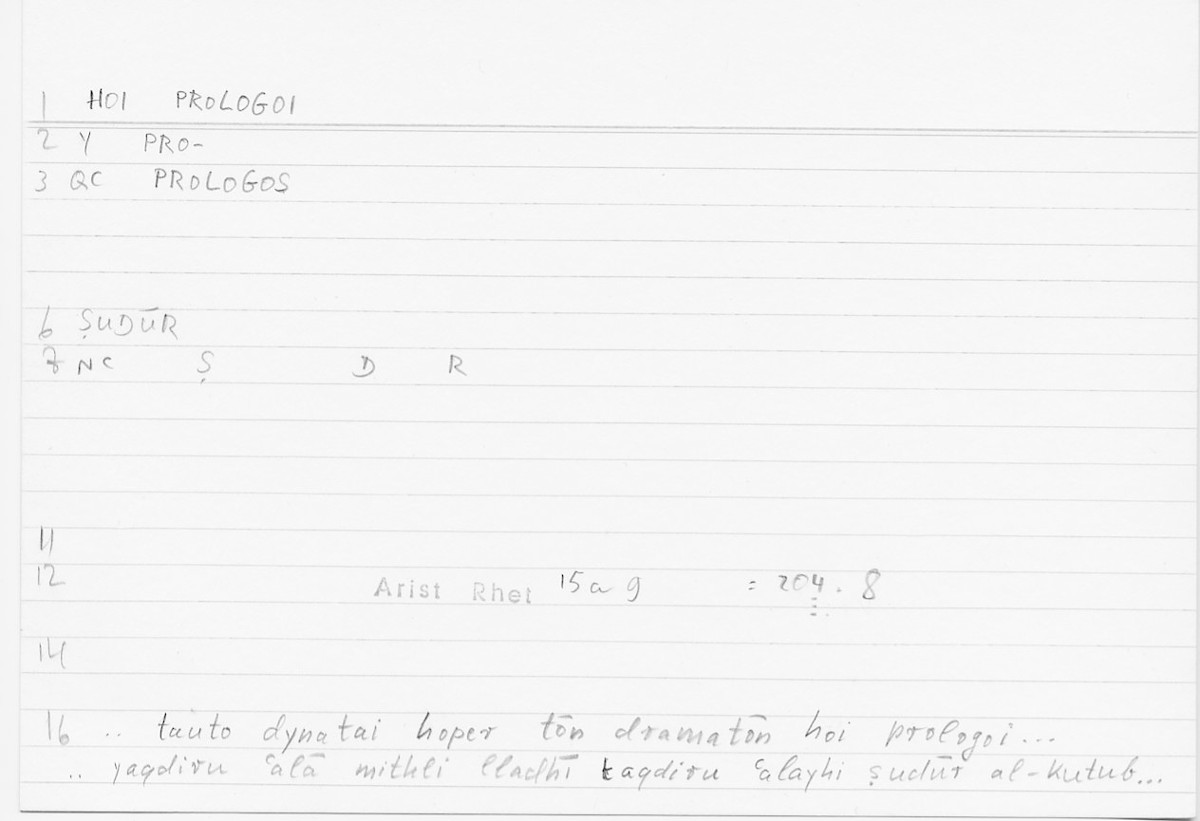 1 HOI PROLOGOI
2 Y PRO-
3 QC PROLOGOS
6 ṢUDŪR
7 NC Ṣ D R
11
12 Arist Rhet 15a9 = 204.8
14
16 .. tauto dynatai hoper tōn dramatōn hoi prologoi...
.. yaqdiru ʿalā mithli lladhī taqdiru ʿalayhi ṣudūr al-kutub...